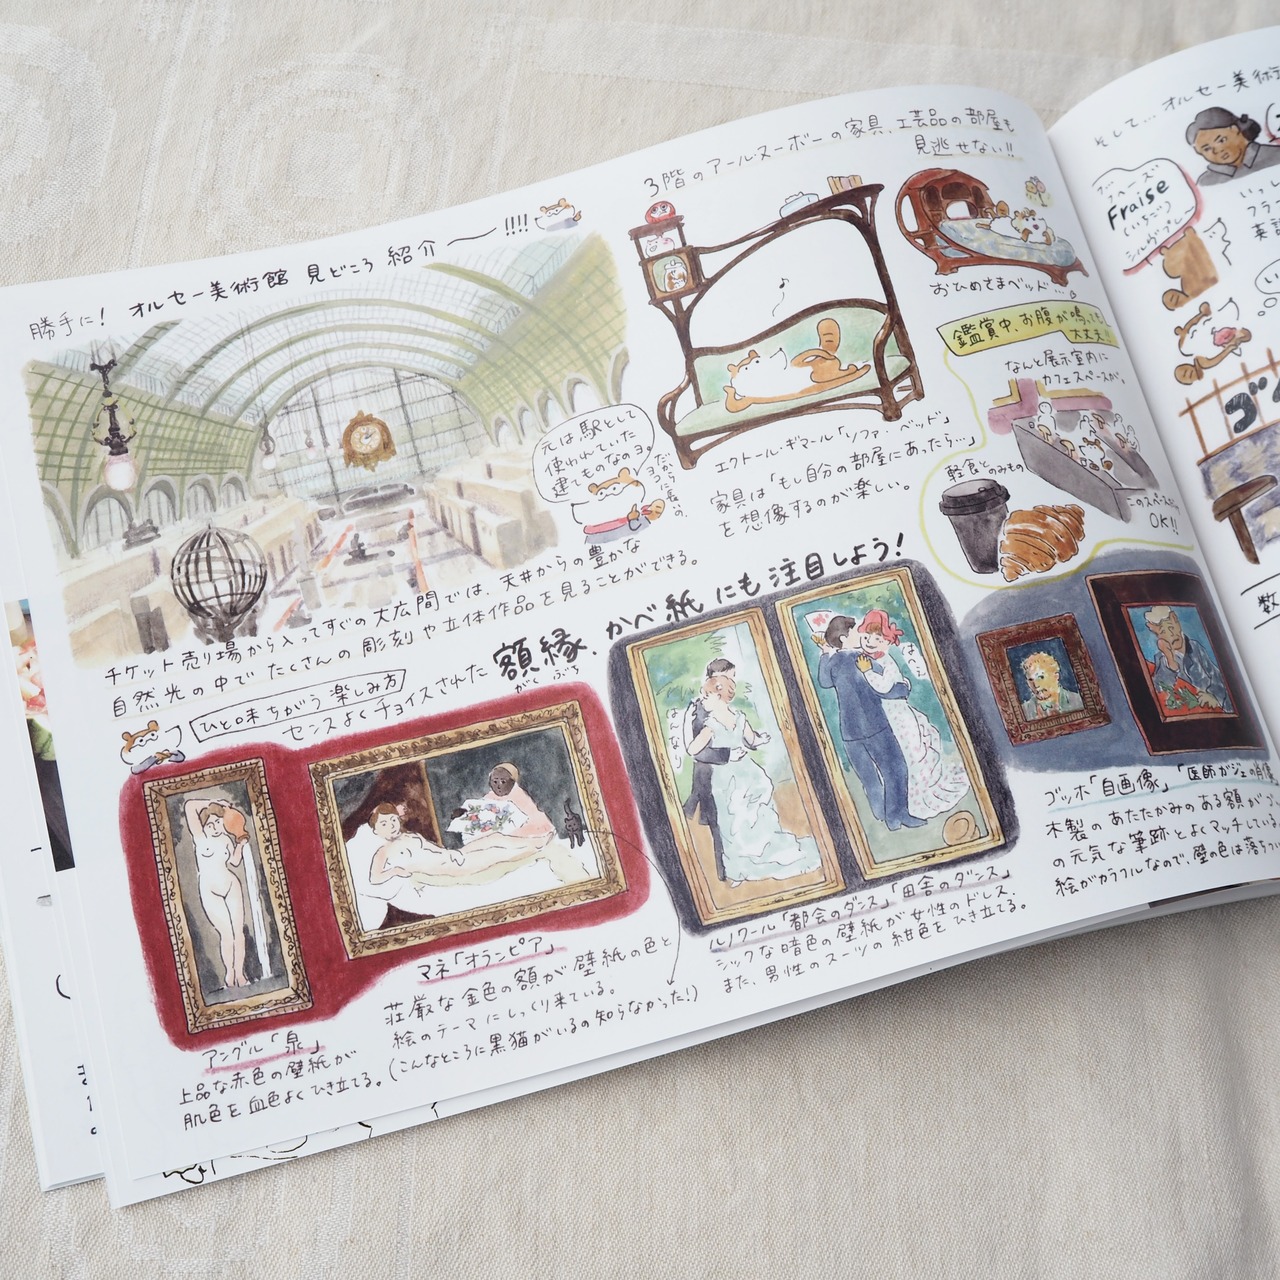 勝手に! オルセー美術館 見どころ 紹介〜!!!!
元は駅として
使われていた
建てものなのヨ
だから
ヨコに長いの。
チケット売り場から入ってすぐの大広間では、天井からの豊かな
自然光の中でたくさんの彫刻や立体作品を見ることができる。
3階のアールヌーボーの家具、工芸品の部屋も
見逃せない!!
エクトール・ギマール「ソファ・ベッド」
家具は「もし自分の部屋にあったら…」
を想像するのが楽しい。
おひめさまベッド…
鑑賞中、お腹が鳴っても
大丈夫!!
なんと展示室内に
カフェスペースが。
軽食とのみもの
OK!!
ひと味ちがう楽しみ方
センスよくチョイスされた 額縁、かべ紙 にも注目しよう!
がくぶち
アングル「泉」
上品な赤色の壁紙が
肌色を血色よくひき立てる。
マネ「オランピア」
荘厳な金色の額が壁紙の色と
絵のテーマにしっくり来ている。
(こんなところに黒猫がいるの知らなかった!)
はんなり
ルノワール「都会のダンス」「田舎のダンス」
シックな暗色の壁紙が女性のドレス、
また、男性のスーツの紺色をひき立てる。
ゴッホ「自画像」「医師ガジェの肖像
木製のあたたかみのある額が
の元気な筆跡とよくマッチしている
絵がカラフルなので、壁の色は落ちつい
そして… オルセー美術
Fraise
(いちご)
シルヴプレー
いっし
フラン
英語
ゴ
数